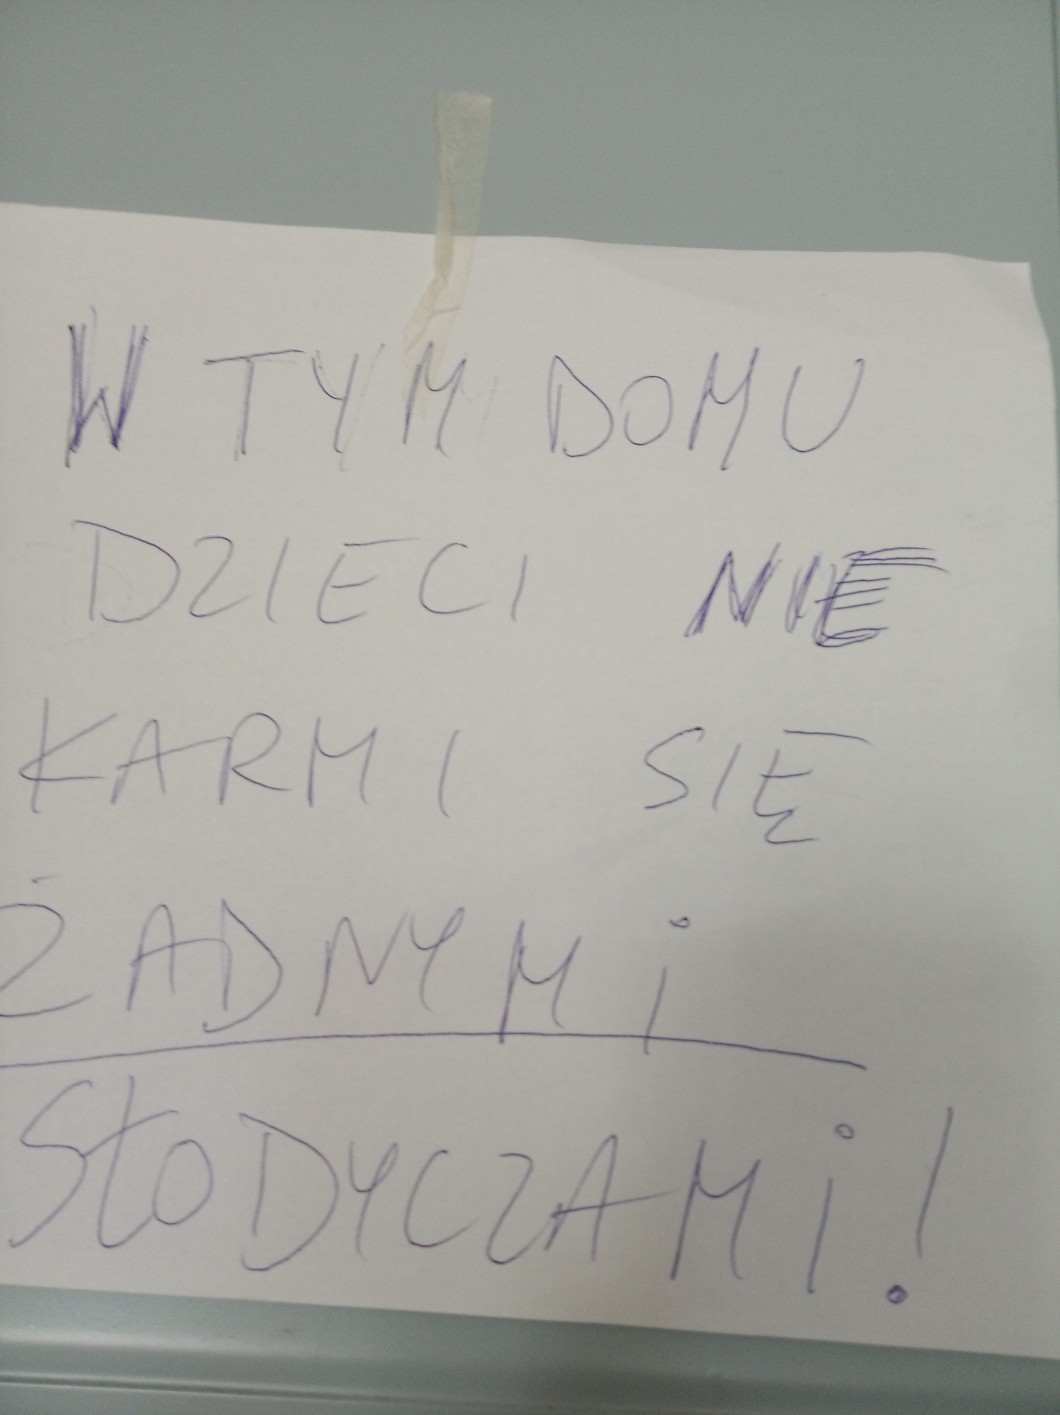 W TYM DOMU
DZIECI NIE
KARMI SIĘ
ŻADNYMi
SŁODYCZAMi!